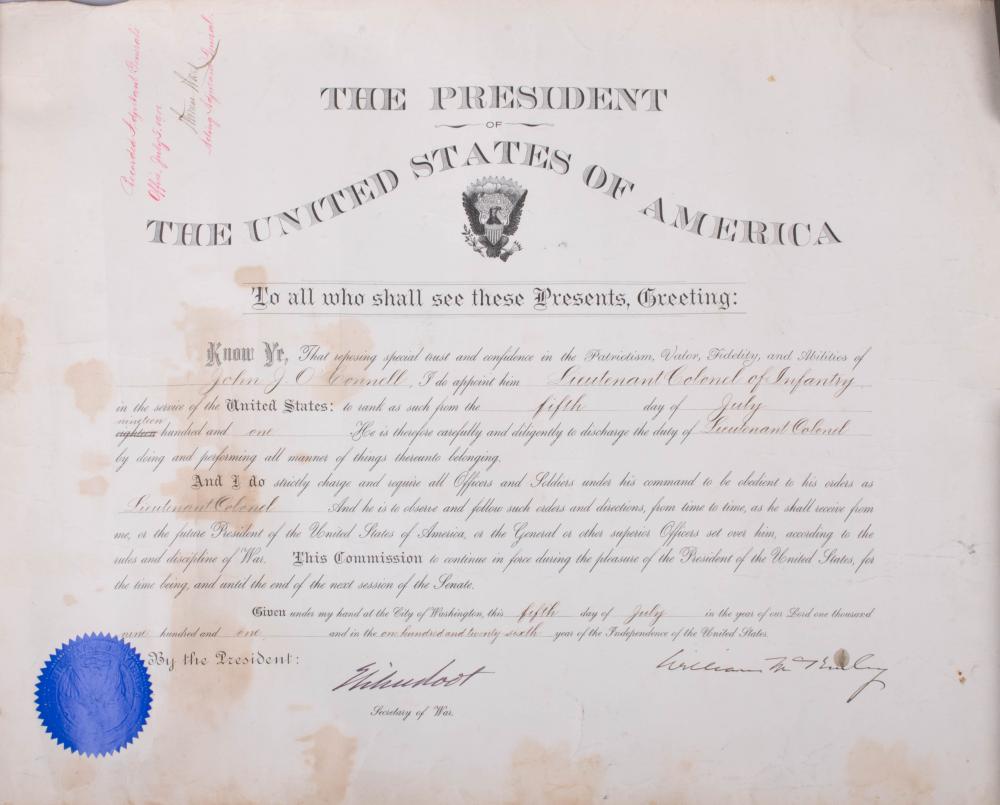 Recorded Adjutant General's
Office, July 5. 1901
Acting Adjutant General.
THE PRESIDENT
OF
THE UNITED STATES OF AMERICA
To all who shall see these Presents, Greeting:
Know Ye, That reposing special trust and confidence in the Patriotism, Valor, Fidelity, and Abilities of
John J. O'Connell, I do appoint him Lieutenant Colonel of Infantry
in the service of the United States: to rank as such from the fifth day of July
nineteen
eighteen hundred and one. He is therefore carefully and diligently to discharge the duty of Lieutenant Colonel
by doing and performing all manner of things thereunto belonging.
And I do strictly charge and require all Officers and Soldiers under his command to be obedient to his orders as
Lieutenant Colonel And he is to observe and follow such orders and directions, from time to time, as he shall receive from
me, or the future President of the United States of America, or the General or other superior Officers set over him, according to the
rules and discipline of War. This Commission to continue in force during the pleasure of the President of the United States, for
the time being, and until the end of the next session of the Senate.
Given under my hand at the City of Washington, this fifth day of July in the year of our Lord one thousand
nine hundred and one, and in the one hundred and twenty sixth year of the Independence of the United States.
By the President:
Elihu Root
William McKinley
Secretary of War.